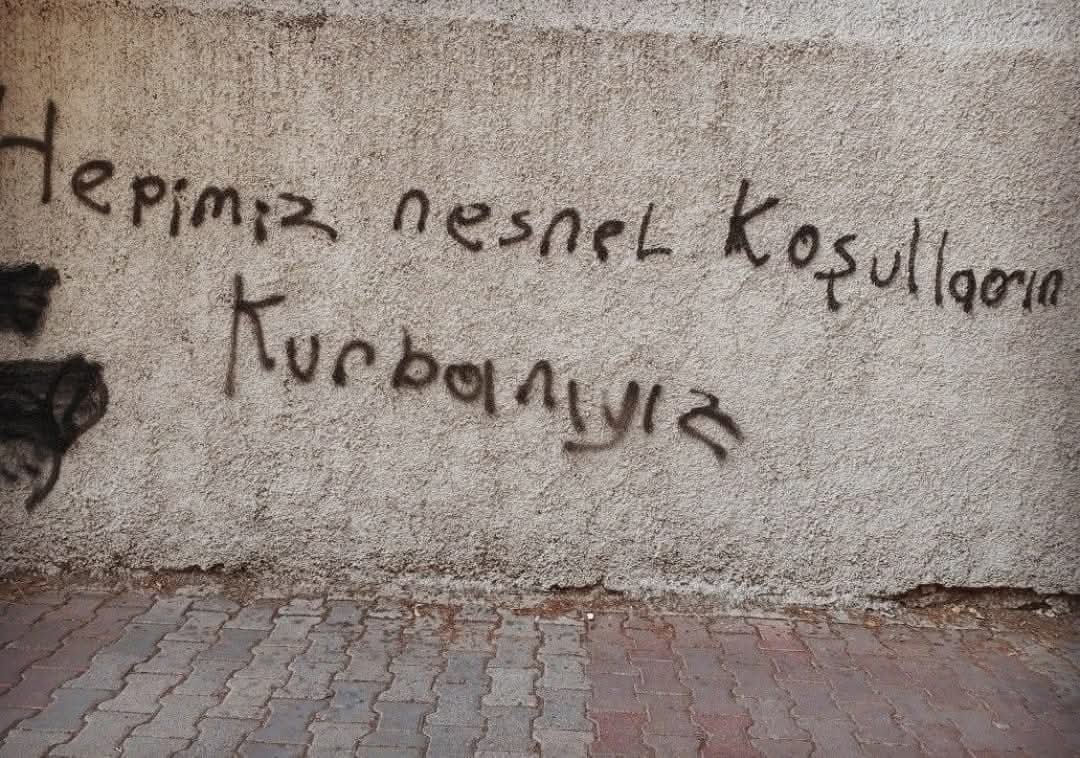 Hepimiz nesnel Koşulların
Kurbanıyız